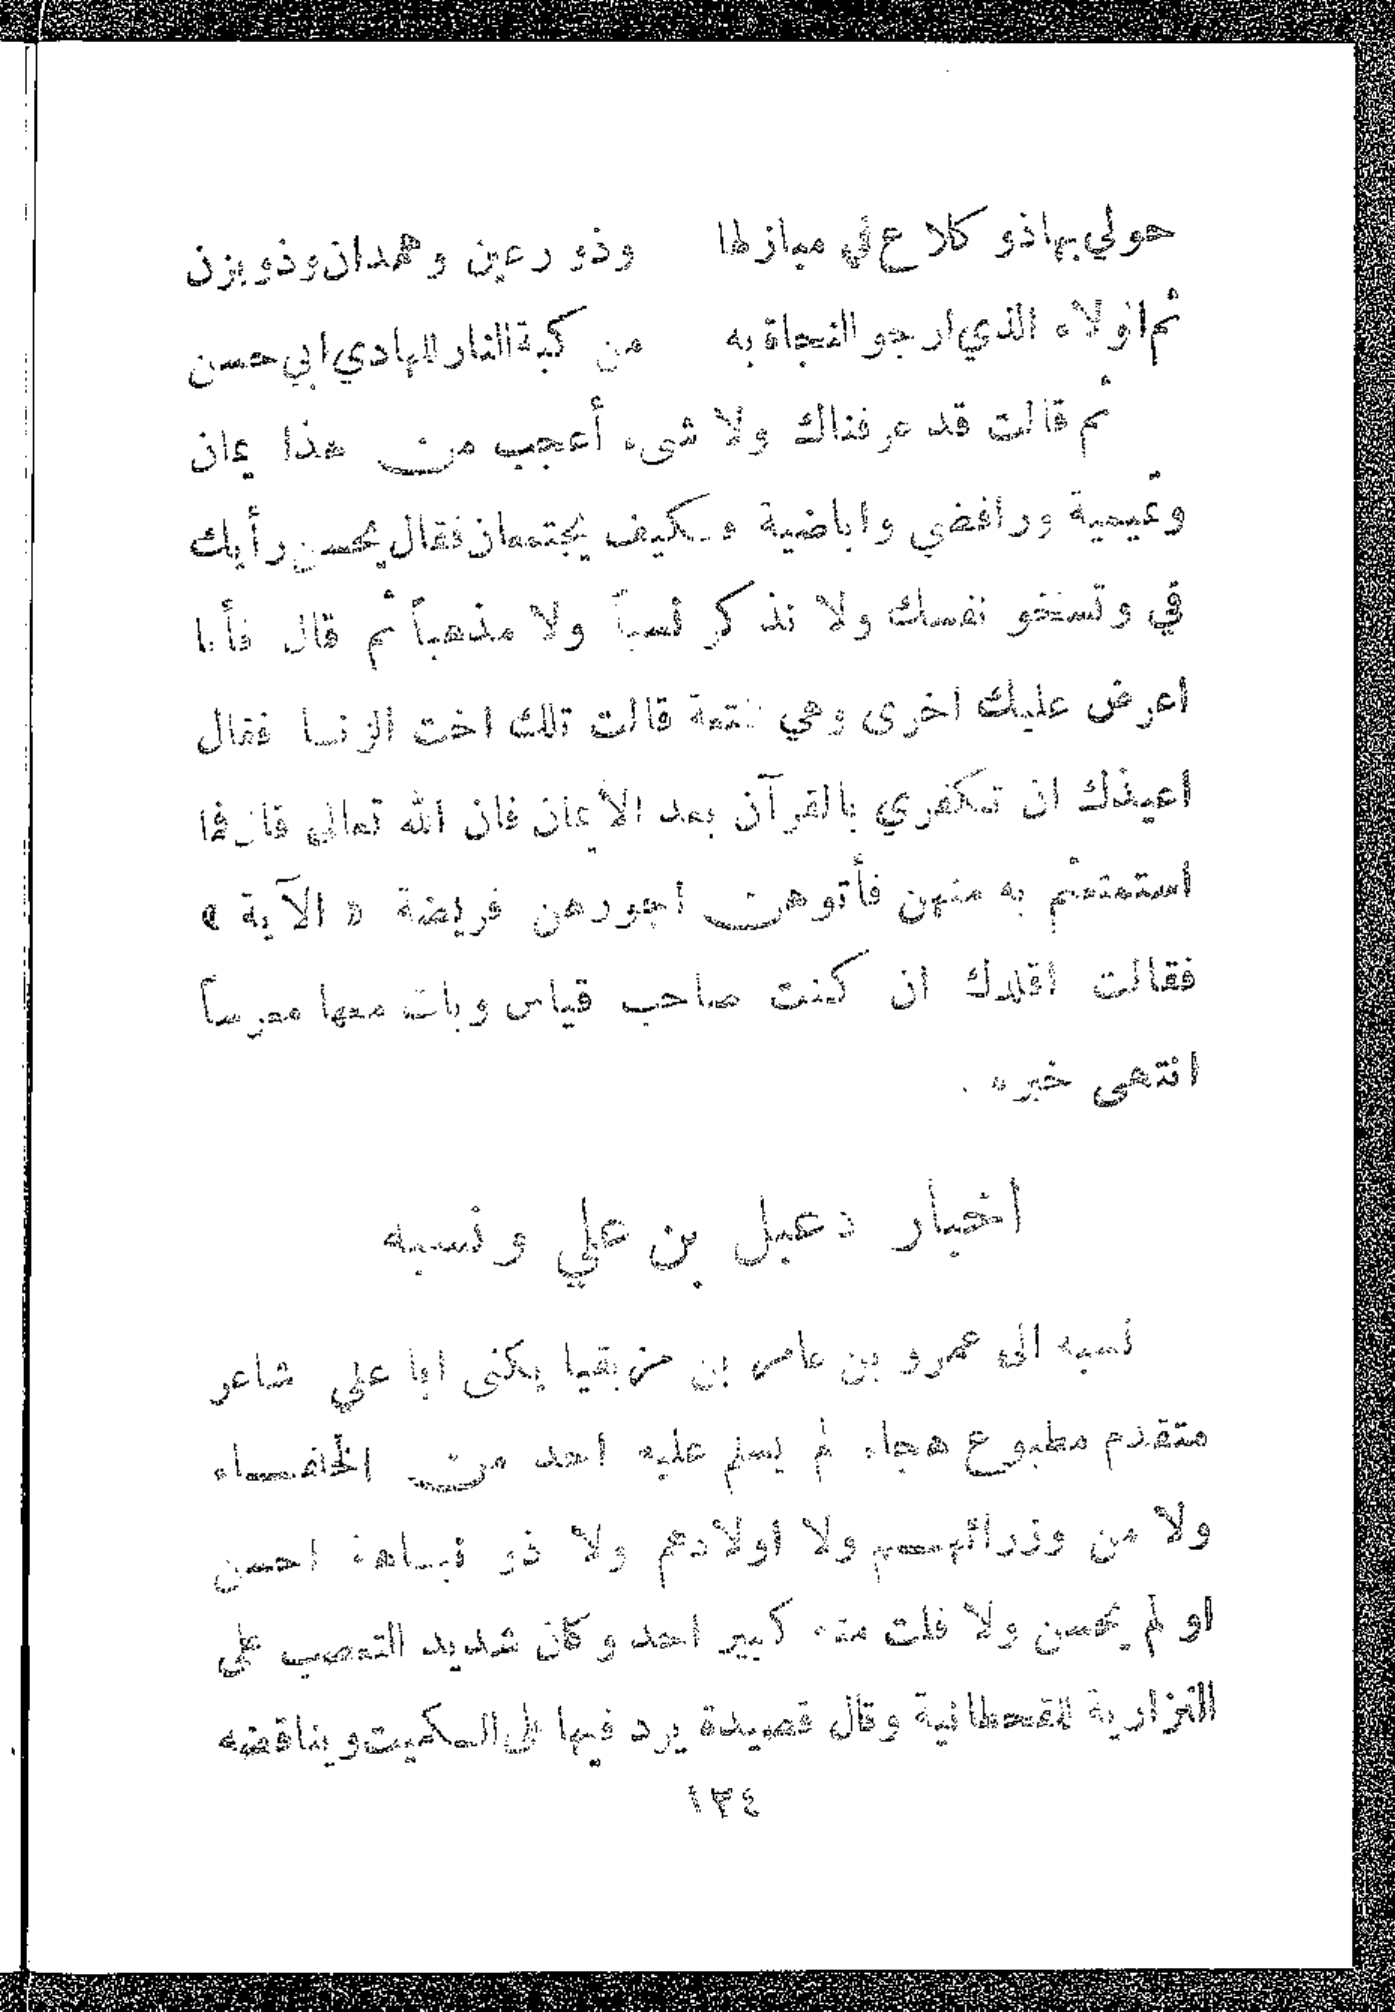 حولي بها ذو كلاع في منازلها وذو رعين وهمدان وذو يزن
ثم اولاء الذي ارجو النجاة به من كبة النار للهادي ابي حسن
ثم قالت قد عرفناك ولا شيء أعجب من هذا يمان
وتميمية ورافضي واباضية وكيف يجتمعان فقال بحسن رأيك
في وتسخو نفسك ولا نذكر نسباً ولا مذهباً ثم قال فأنا
اعرض عليك اخرى وهي متعة قالت تلك اخت الزنا فقال
اعيذك ان تكفري بالقرآن بعد الأيمان فان الله تعالى قال فما
استمتعتم به منهن فأتوهن اجورهن فريضة « الآية »
فقالت اقلدك ان كنت صاحب قياس وبات معها معرساً
انتهى خبره .
اخبار دعبل بن علي ونسبه
نسبه الى عمرو بن عامر بن مزيقيا يكنى ابا علي شاعر
متقدم مطبوع هجاء لم يسلم عليه احد من الخلفاء
ولا من وزرائهم ولا اولادهم ولا ذو نباهة احسن
او لم يحسن ولا فلت منه كبير احد وكان شديد التعصب على
النزارية للقحطانية وقال قصيدة يرد فيها على الكميت ويناقضه
١٣٤